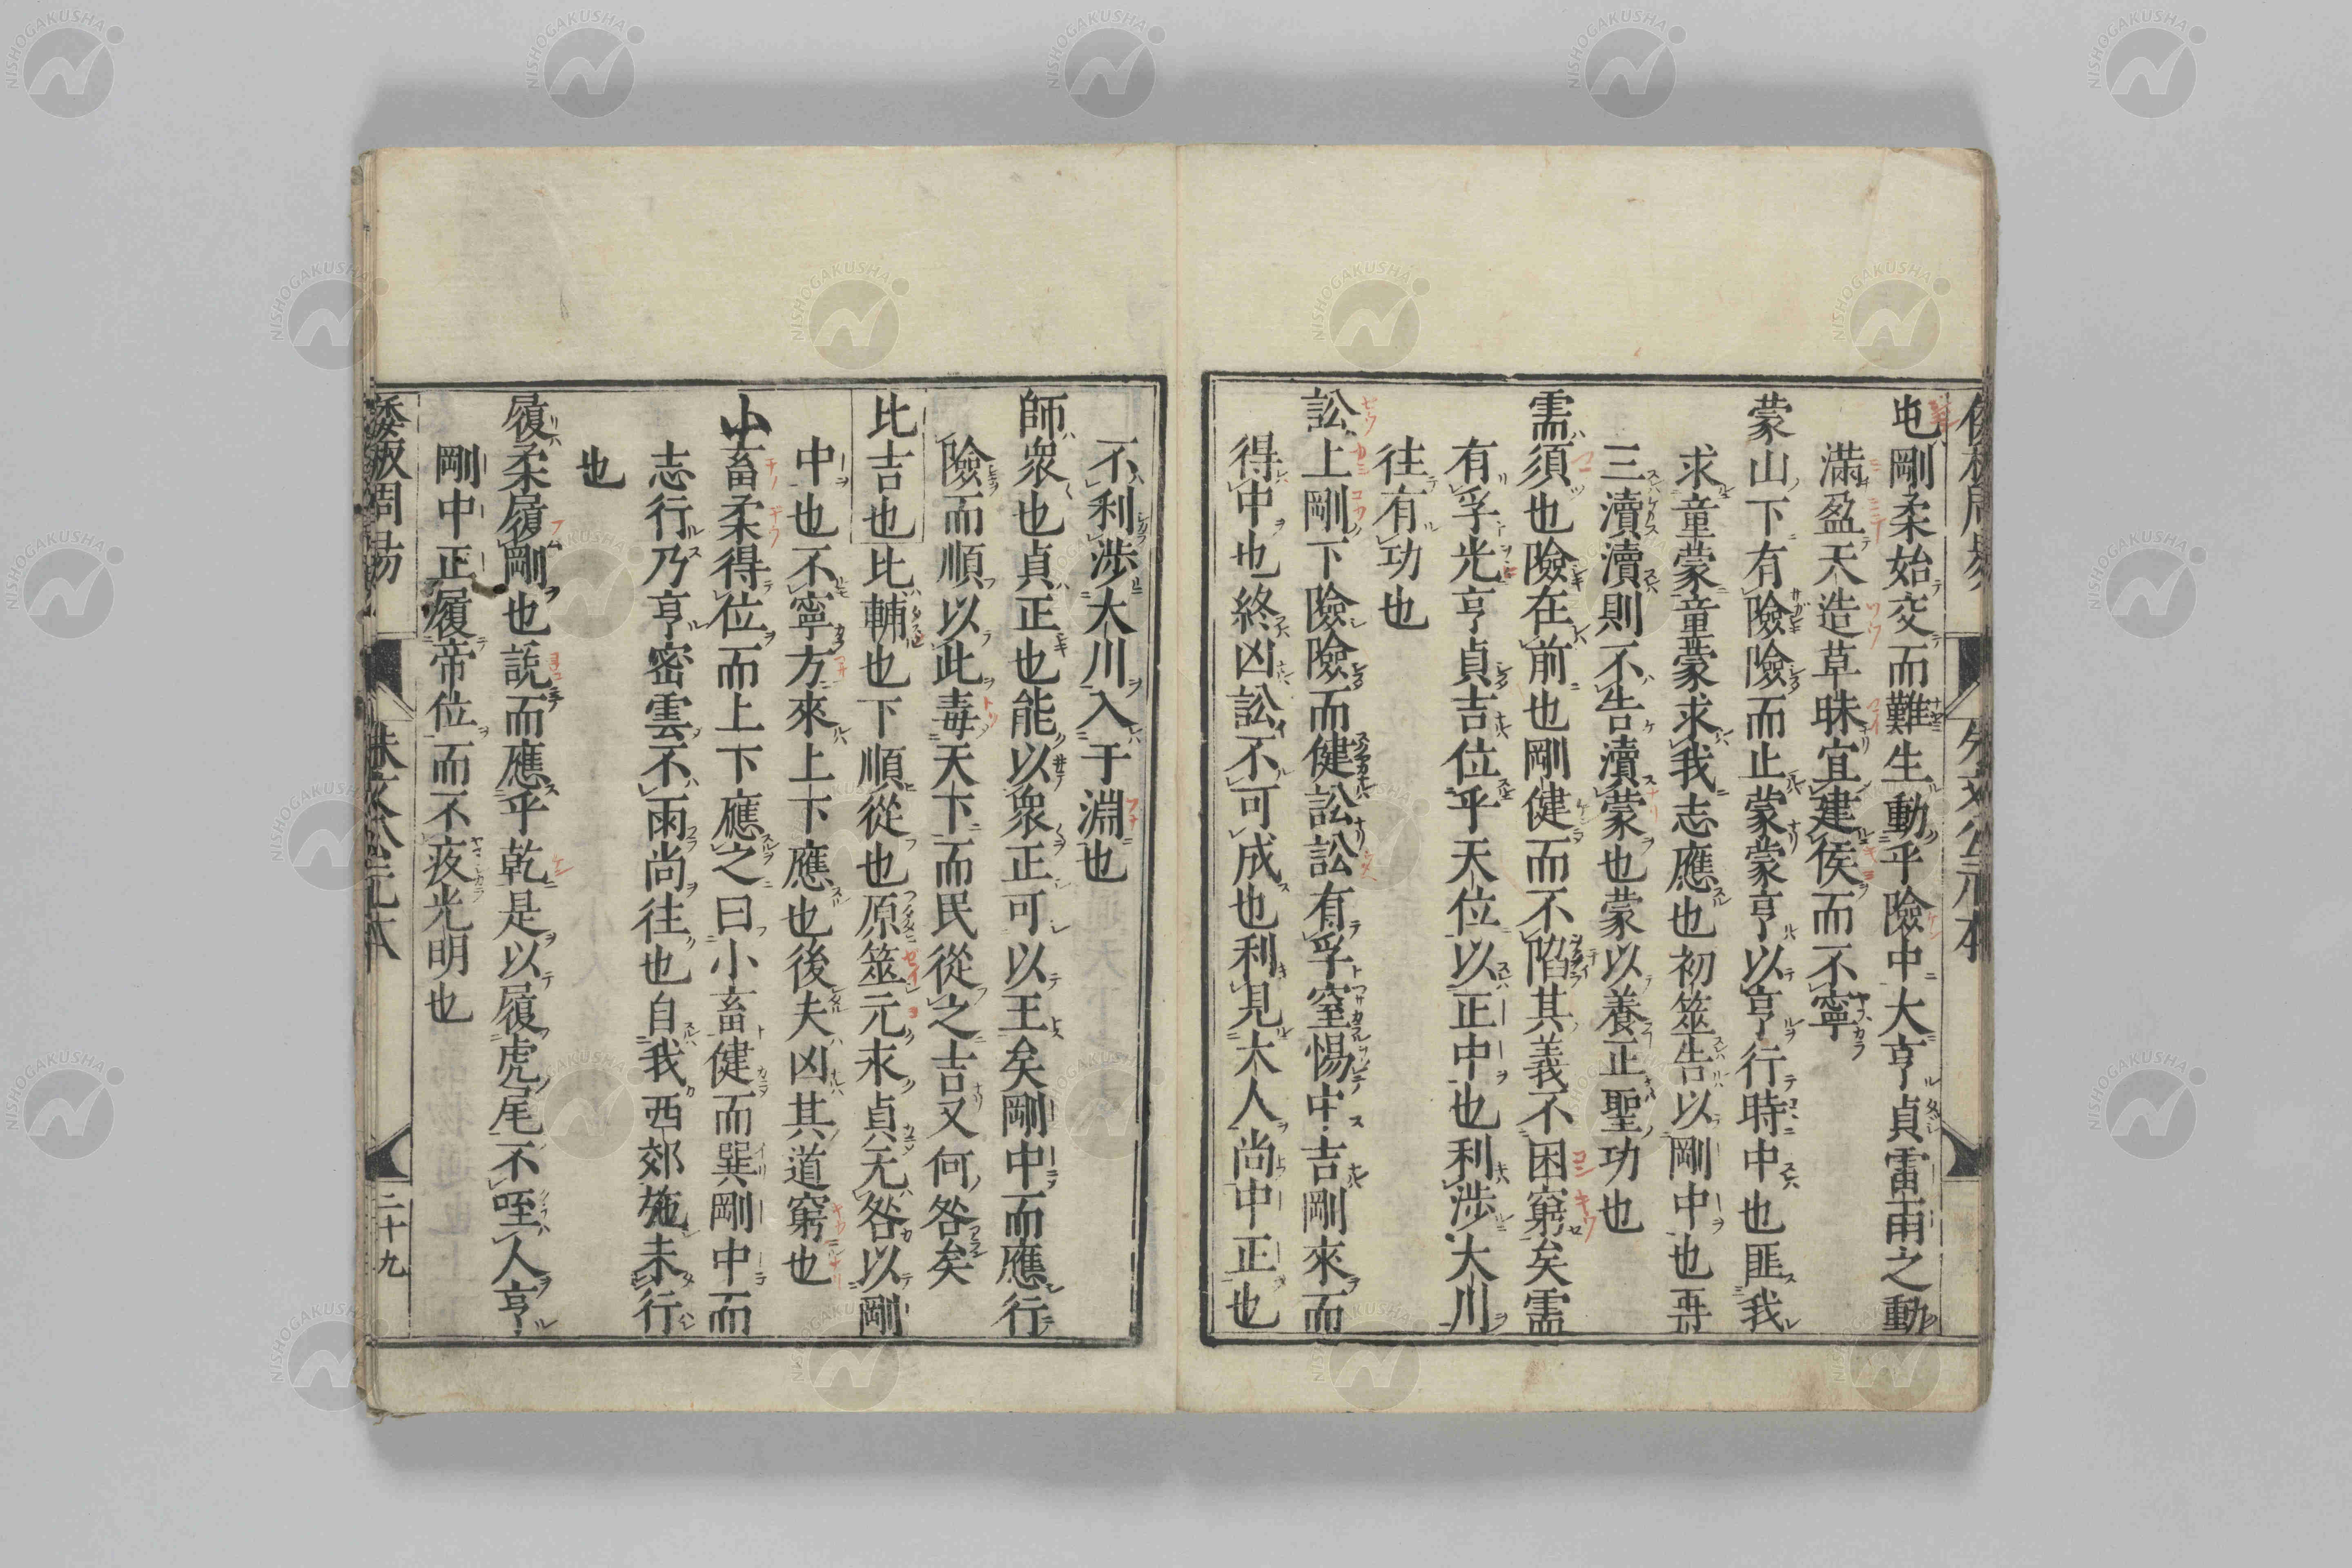 屯剛柔始交而難生動乎險中大亨貞雷雨之動
滿盈天造草昧宜建侯而不寧
蒙山下有險險而止蒙蒙亨以亨行時中也匪我
求童蒙童蒙求我志應也初筮告以剛中也再
三瀆瀆則不告瀆蒙也蒙以養正聖功也
需須也險在前也剛健而不陷其義不困窮矣需
有孚光亨貞吉位乎天位以正中也利涉大川
往有功也
訟上剛下險險而健訟訟有孚窒惕中吉剛來而
得中也終凶訟不可成也利見大人尚中正也
不利涉大川入于淵也
師衆也貞正也能以衆正可以王矣剛中而應行
險而順以此毒天下而民從之吉又何咎矣
比吉也比輔也下順從也原筮元永貞无咎以剛
中也不寧方來上下應也後夫凶其道窮也
小畜柔得位而上下應之曰小畜健而巽剛中而
志行乃亨密雲不雨尚往也自我西郊施未行
也
履柔履剛也說而應乎乾是以履虎尾不咥人亨
剛中正履帝位而不疚光明也
倭板周易 朱文公元本 二十九
NISHOGAKUSHA